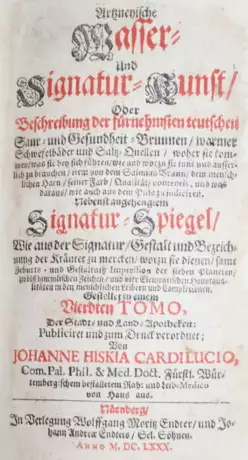 Artzneyische
Wasser-
Und
Signatur-Kunst/
Oder
Beschreibung der fürnehmsten teutschen
Saur- und Gesundheit-Brunnen/ warmer
Schwefelbäder und Saltz-Quellen/ woher sie kom-
men/ was sie bey sich führen/ wie und worzu sie inne und äusser-
lich zu brauchen/ item von dem Salmiax Brunn/ dem mensch-
lichen Harn/ seiner Farb/ Qualität/ contentis, und was
daraus/ wie auch aus dem Puls zu judiciren.
Nebenst angehengtem
Signatur-Spiegel/
Wie aus der Signatur/ Gestalt und Bezeich-
nung der Kräuter zu mercken/ worzu sie dienen/ samt
Geburts- und Gestaltnüß Impression der sieben Planeten/
zwölff himmlischen Zeichen/ und vier Elementischen Haupt-
in den menschlichen Cörpern und Complexionen.
Gestellet zu einem
Vierdten TOMO,
Der Stadt- und Land-Apotheken:
Publiciret und zum Druck verordnet;
Von
JOHANNE HISKIA CARDILUCIO,
Com. Pal. Phil. & Med. Doct. Fürstl. Wür-
tembergischem bestalletem Raht und Leib-Medico
von Haus aus.
Nürnberg/
In Verlegung Wolffgang Moritz Endter/ und Jo-
hann Andreæ Endters/ Sel. Söhnen.
ANNO M. DC. LXXX.